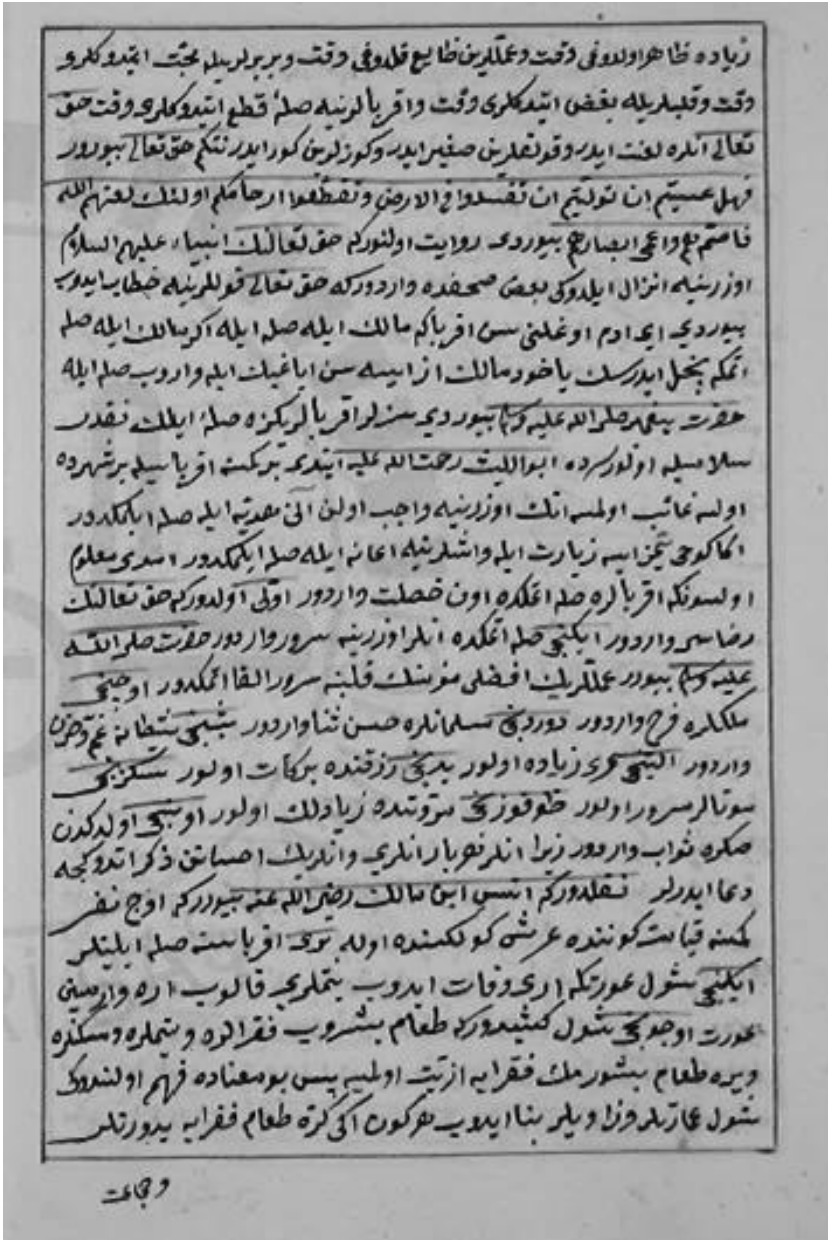 زياده ظاهر اولدوغى وقت وعمللرين ضايع قلدوغى وقت و بربرلريله محبّت ايتدوكلرى
وقت وقلبلريله بغض ايتدكلرى وقت واقربالرنيله صلهٔ قطع ايتدوكلرى وقت حق
تعالى انلره لعنت ايدر وقولقلرين صغير ايدر وكوزلرين كور ايدر نتكم حق تعالى بيورور
فهل عسيتم ان توليتم ان تفسدوا فى الارض وتقطّعوا ارحامكم اولئك لعنهم الله
فاصمّهم واعمى ابصارهم بيوردى روايت اولنوركه حق تعالينك انبياء عليهم السلام
اوزرنيله انزال ايلدوكى بعض صحفده واردوركه حق تعالى قوللرينه خطاب ايدوب
بيوردى اى ادم اوغلنى سن اقرباكه مالك ايله صله ايله اكر مالك ايله صله
اتمكه بخل ايدرسك ياخود مالك از ايسه سن اياغيك ايله واروب صله ايله
حضرت پيغمبر صلى الله عليه وسلم بيوردى سزلر اقربالريكزه صلهٔ ايلمك نقدر
سلاميله اولورسده ابو الليث رحمت الله عليه ايتدى بر كمسه اقرباسيله بر شهرده
اولسه غائب اولمسه انك اوزرنيه واجب اولن آنى هديّه ايله صله ايلمكدور
اكا كوجى يتمز ايسه زيارت ايله واشلرنيه اعانه ايله صله ايلمكدور امدى معلوم
اولسونكه اقربالره صله اتمكده اون خصلت واردور اوّلى اولدوركه حق تعالينك
رضاسى واردور ايكنجى صله اتمكده انلر اوزرينه سرور واردور حضرت صلى الله
عليه وسلم بيورر عمللريك افضلى مؤمنك قلبنه سرور القا اتمكدور اوجنجى
ملكلره فرح واردور دوردنجى مسلمانلره حسن ثنا واردور بشنجى شيطانه غم وحزن
واردور التنجى عمرى زياده اولور يدنجى رزقنده بركات اولور سكزنجى
موتالر مسرور اولور طوقوزنجى مروتنده زيادلك اولور اوننجى اولدكدن
صكره ثواب واردور زيرا انلر انلرى وانلريك احسانن ذكر اتدوكجه
دعا ايدرلر نقلدوركه انس ابن مالك رضى الله عنه بيوردركه اوج نفر
كمسه قيامت كوننده عرش كولكسنده اوله برى اقرباسنه صله ايليتلر
ايكنجى شول عورتكه ارى وفات ايدوب يتملرى قالوب اره وارميتى
عورت اوجونجى شول كشيدوركه طعام بشروب فقرالره ويتيملره ومسكنلره
ويره طعام بشورمك فقرايه از نيت اولميه پس بو معناده فهم اولندوكى
شول عمارتلر وزاويلر بنا ايدوب هركون اكى كرّه طعام فقرايه يدورتلر
وجماعت